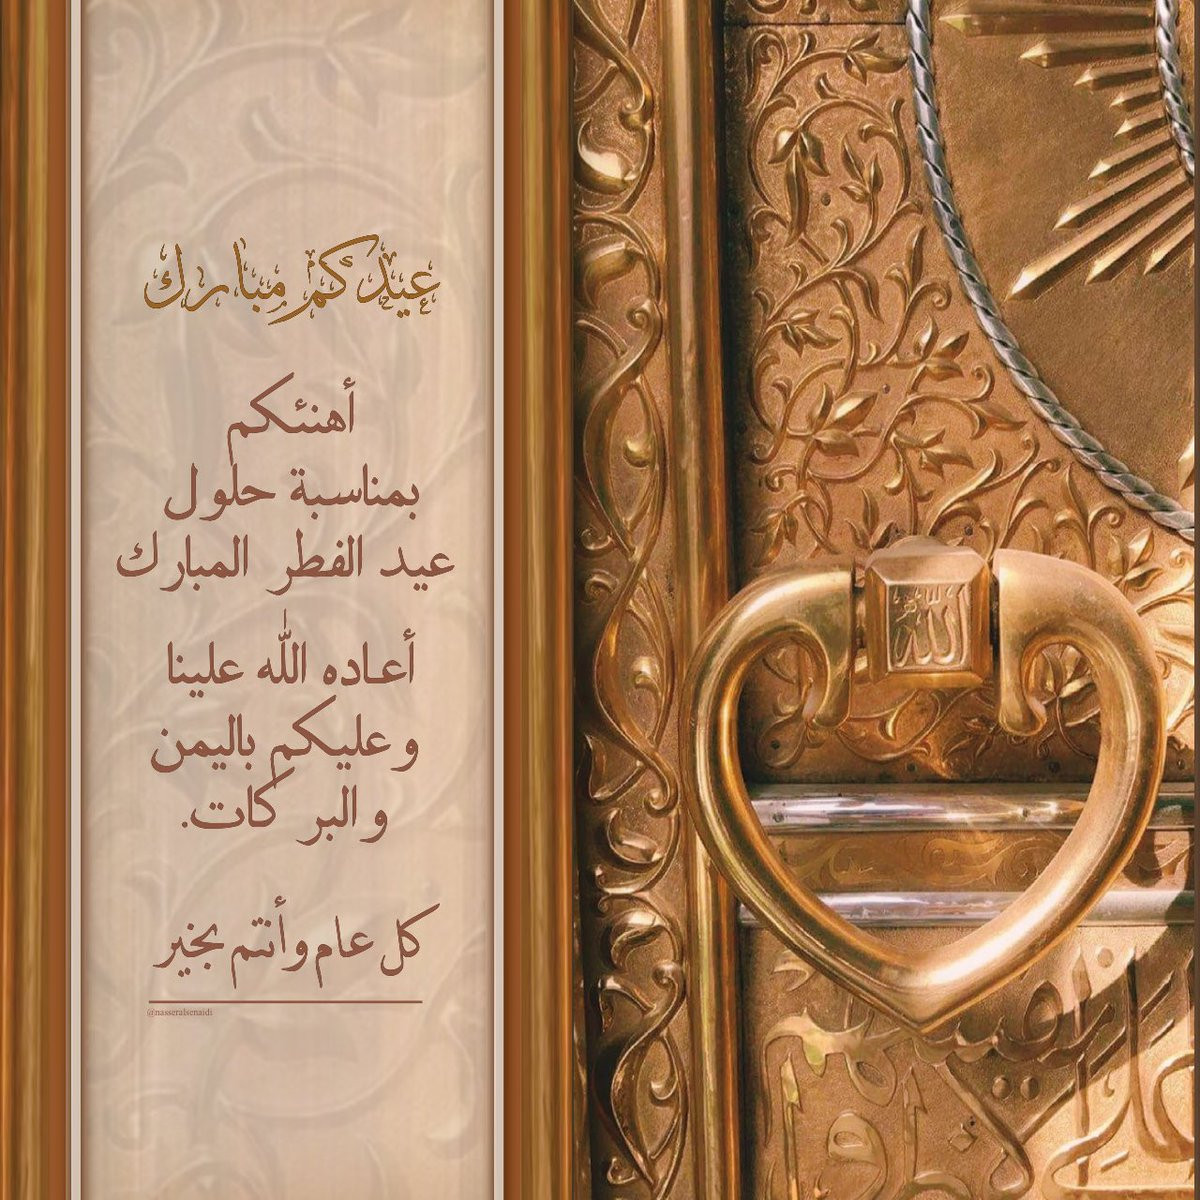 عيدكم مبارك
أهنئكم
بمناسبة حلول
عيد الفطر المبارك
أعاده الله علينا
وعليكم باليمن
والبركات.
كل عام وأنتم بخير
@nasseralsenaidi
الله